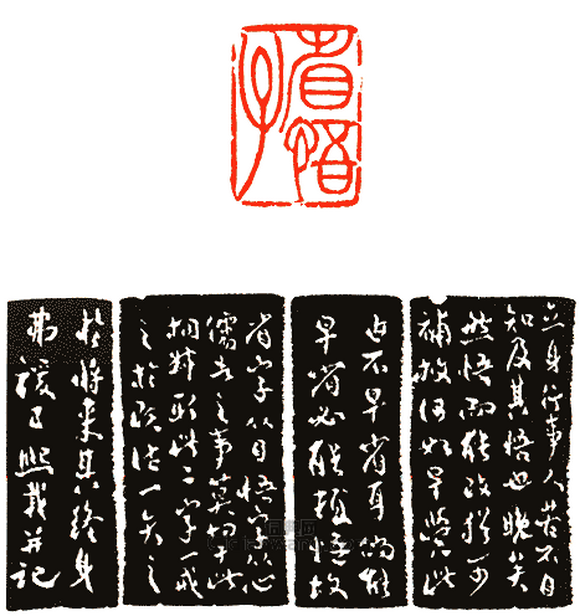 省悟子
立身行事人苦不自
知及其悟也晚矣
然悟而能改猶可
補救何如早覺此
由不早省耳倘能
早省必能頓悟故
省字从目悟字从心
儒者之事莫切于此
相對取此二字一戒
之於既往一矢之
於將來其終身
弗諼已熙載并記